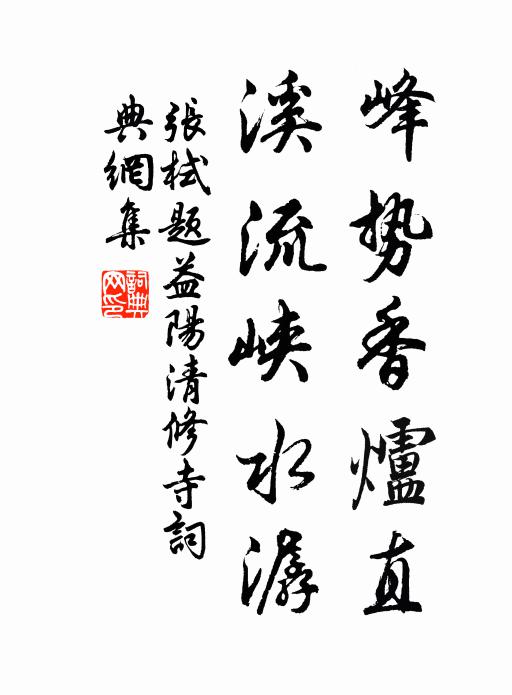 峰势香爐直
溪流峡水潺
張栻题益陽清修寺詞
典網集
詞典网印